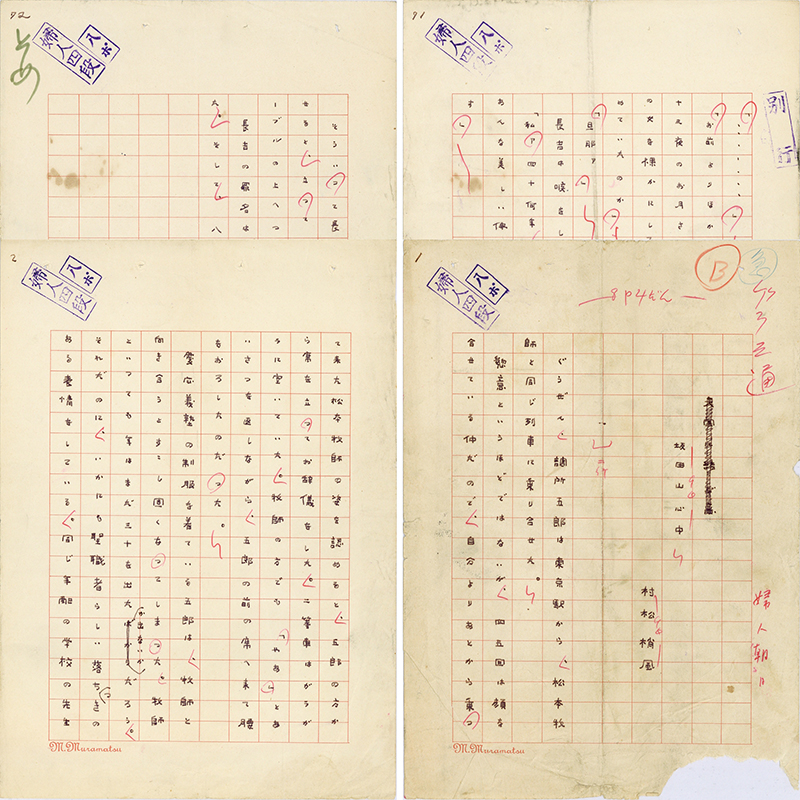 91
八ポ
婦人四段
別行
お前よりほか
十五夜のお月さ
めていたのか
長吉は咳をし
「私、四十何年
あんな美しい仏
す。
92
八ポ
婦人四段
そういつて長
せると、立つて
ーブルの上へつ
長吉の罪名は
た。そして、八
1
八ポ
婦人四段
B
急
8P4だん
婦人朝日
坂田山心中
村松梢風
ぐうぜん、調所五郎は東京駅から、松本牧
師と同じ列車に乗り合せた。
懇意というほどではないが、四五回は顔を
合せている仲だので、自分よりあとから乗つ
M.Muramatsu
2
八ポ
婦人四段
て来た松本牧師の姿を認めると、五郎の方か
ら席を立つてお辞儀をした。二等車はがらが
らに空いていた。牧師の方でも「やあ」とあ
いさつを返しながら、五郎の前の席へ来て腰
をおろしたのだつた。
愛心義塾の制服を着ている五郎は、牧師と
向き合うとすこし固くなつてしまつた。牧師
といつても年はまだ三十を出たか出ないかだろう。
それだのに、いかにも聖職者らしい落ちつきの
ある表情をしている。同じ系統の学校の先生
M.Muramatsu